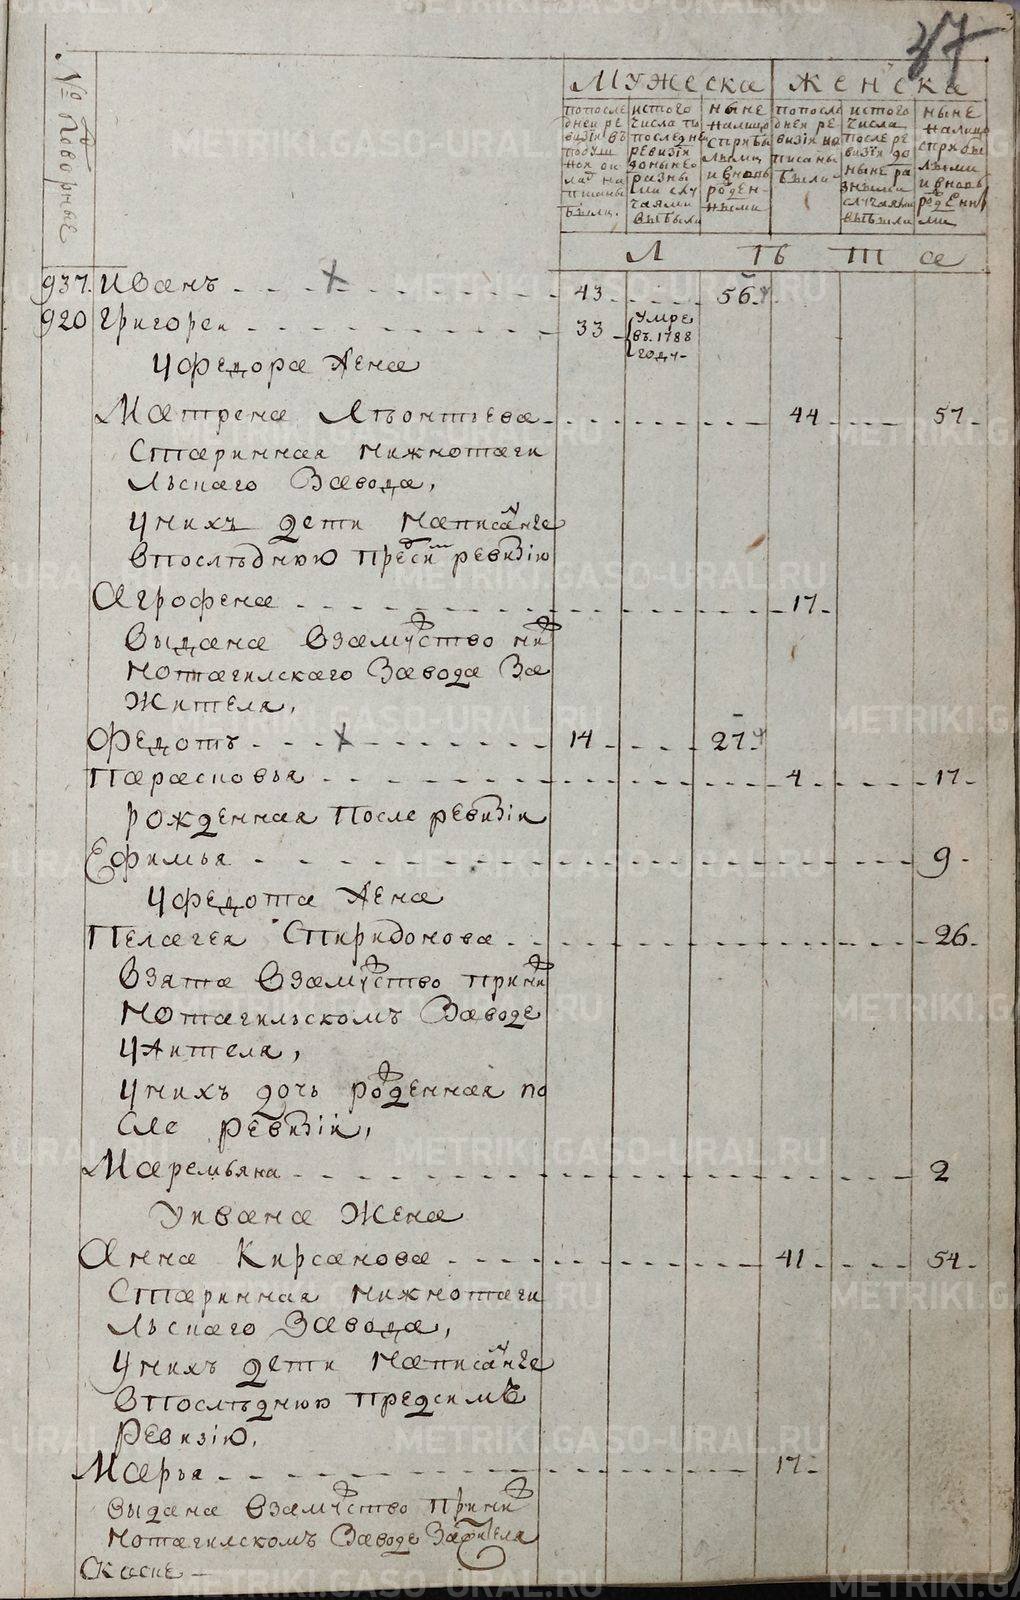 37
№ дворныя
Мужеска Женска
по после дней ревизіи въ подушной оклад написаны были.
ис того числа по последней ревизіи до ныне разными случаями выбыли
ныне на лицо с прибылыми и вновь рожденными
по последней ревизіи написаны были
ис того числа после ревизіи до ныне разными случаями выбыли
ныне на лицо с прибылыми и вновь рожденными
Л ѣ т а
937. Иванъ 43 56.
920 Григореи 33 умре въ. 1788 году
У Федора жена
Матрена Лѣонтьева 44 57.
Старинная нижнотаги
льскаго Завода,
У нихъ дети написанне
в последнюю пред сим ревизію
Агрофена 17.
Выдана взамуство ниж
нотагилскаго Завода за
Жителя,
Федотъ 14 27.
Парасковья 4 17.
рожденная после ревизіи
Ефимья 9
У Федота жена
Пелагея Спиридонова 26.
Взята взамуство при ниж
нотагильскомъ Заводе
У жителя,
У нихъ дочь рожденная по
сле ревизіи,
Маремьяна 2
У Ивана Жена
Анна Кирсанова 41 54.
Старинная нижнотаги
льскаго Завода,
У нихъ дети написанне
в последнюю предсимъ
Ревизію.
Марья 17
Выдана взамуство при ниж
нотагилскомъ Заводе За жителя
METRIKI.GASO-URAL.RU